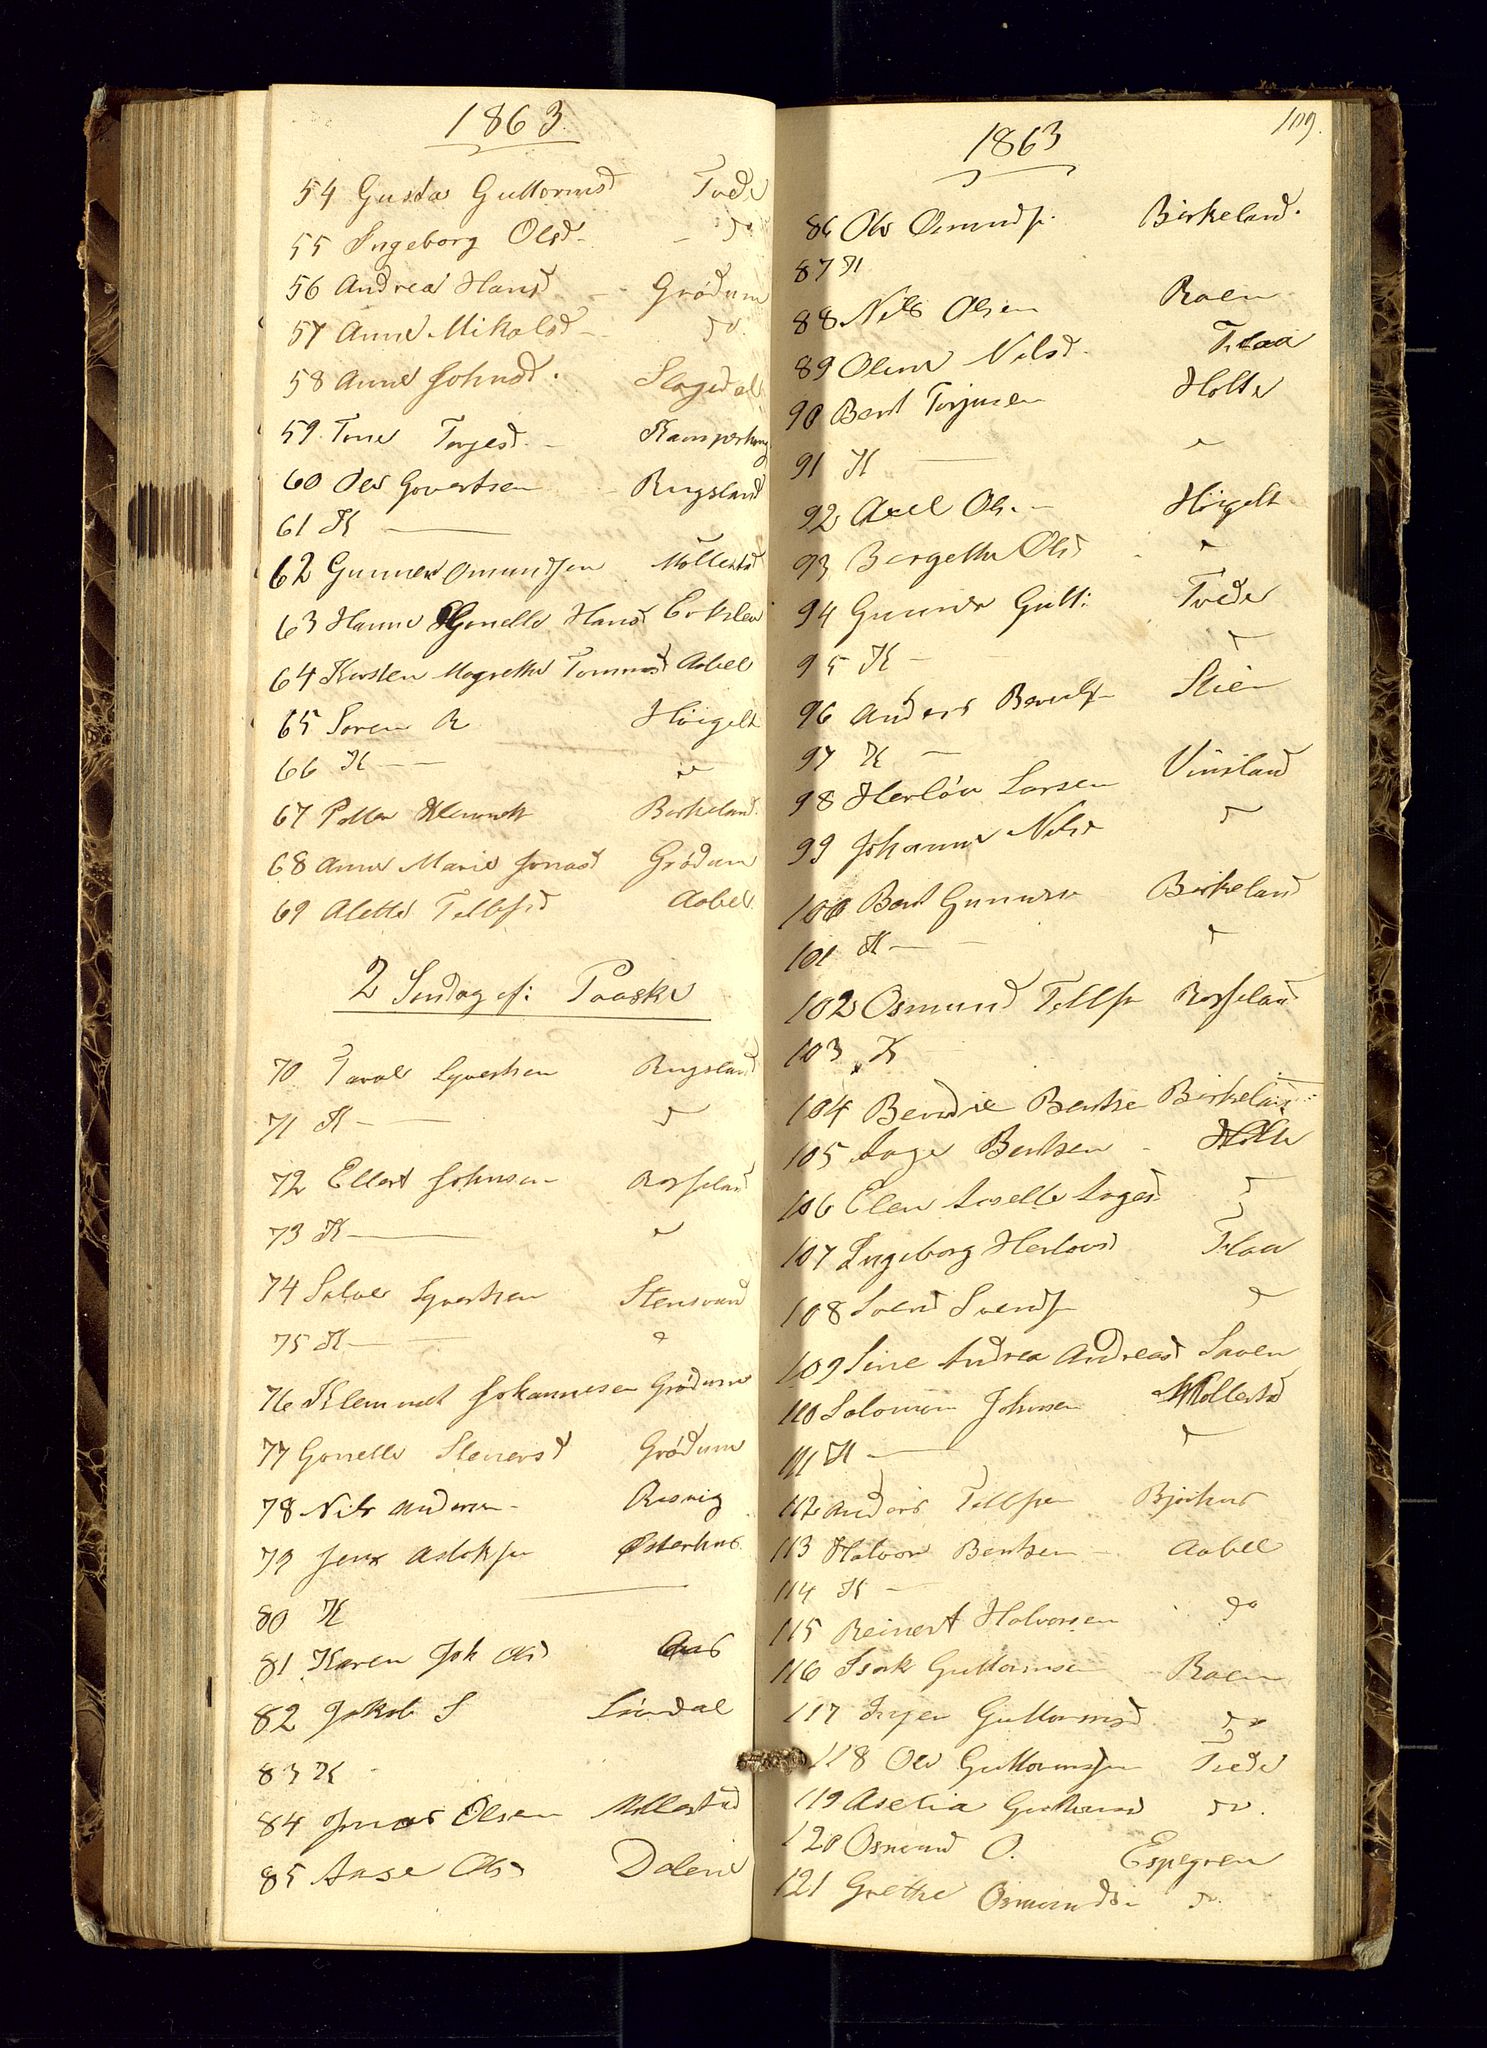 1863.
54 Gusta Guttormsd Tvede
55 Ingeborg Olsd - do
56 Andrea Hansd - Grödum
57 Anne Mikalsd - do.
58 Anne Johnsd. Slogedal
59. Tone Torjesd. -
60 Ole Govertsen Rugsland
61 K —
62 Gunner Omundsen Mollestad
63 Hanne Gonelle Hansd
64 Kirsten Magrethe Tommasd Aabel
65 Soren R Höigelt
66 K - - "
67 Peller Klemmet Birkeland.
68 Anne Marie Jonasd Grödum
69 Alette Tellefsd Aabel.
2 Söndag ef: Paaske
70 Tarale Syvertsen Rugsland
71 K - - do
72 Ellert Johnsen - Rosseland
73 K — "
74 Salve Syvertsen Stensvand
75 K - - "
76 Klemmet Johannesen Grödum
77 Gonelle Stenersd Grödum
78 Nils Andersen - Risvig
79 Jens Aslaksen Österhus.
80 K
81 Karen Joh Olsd Aas
82 Jakob S Löindal
83 K -
84 Jonas Olsen Mollestad
85 Aase Olsd Dalene
109.
1863
86 Ole Osmundsn. Birkeland.
87 K
88 Nils Olsen Raen
89 Oline Nilsd. Flaa
90 Bent Torjusen Holte
91 K — "
92 Axel Ols. - Höigelt
93 Bergethe Olsd - "
94 Gunner Gutt: Tvede
95 K - - do
96 Anders Berulfsn Stien
97 K —
98 Herlöv Larsen Vinsland
99 Johanne Nilsd do
100 Bent Gunners Birkeland
101 K - - do
102 Osmund Tellfsn Rosseland
103 K -
104 Bendie Bentse Birkeland
105 Aage Bentsen - Holte
106 Elen Giselle Aagesd do
107 Ingeborg Herlovsd Flaa
108 Svend Svendsn do
109 Sine Andrea Andreasd Saven
110 Solomon Johnsen Mollestad
111 K — do
112 Anders Tellefsen Bjorhus
113 Halvor Bentsen - Aabel
114 K -
115 Reinert Halvorsen do
116 Isak Guttormsen Raen
117 Inger Guttormsd do
118 Ole Guttormsen Tvede
119 Aselia Guttormsd do.
120 Osmund O. Espegren
121 Grethe Osmundsn do.